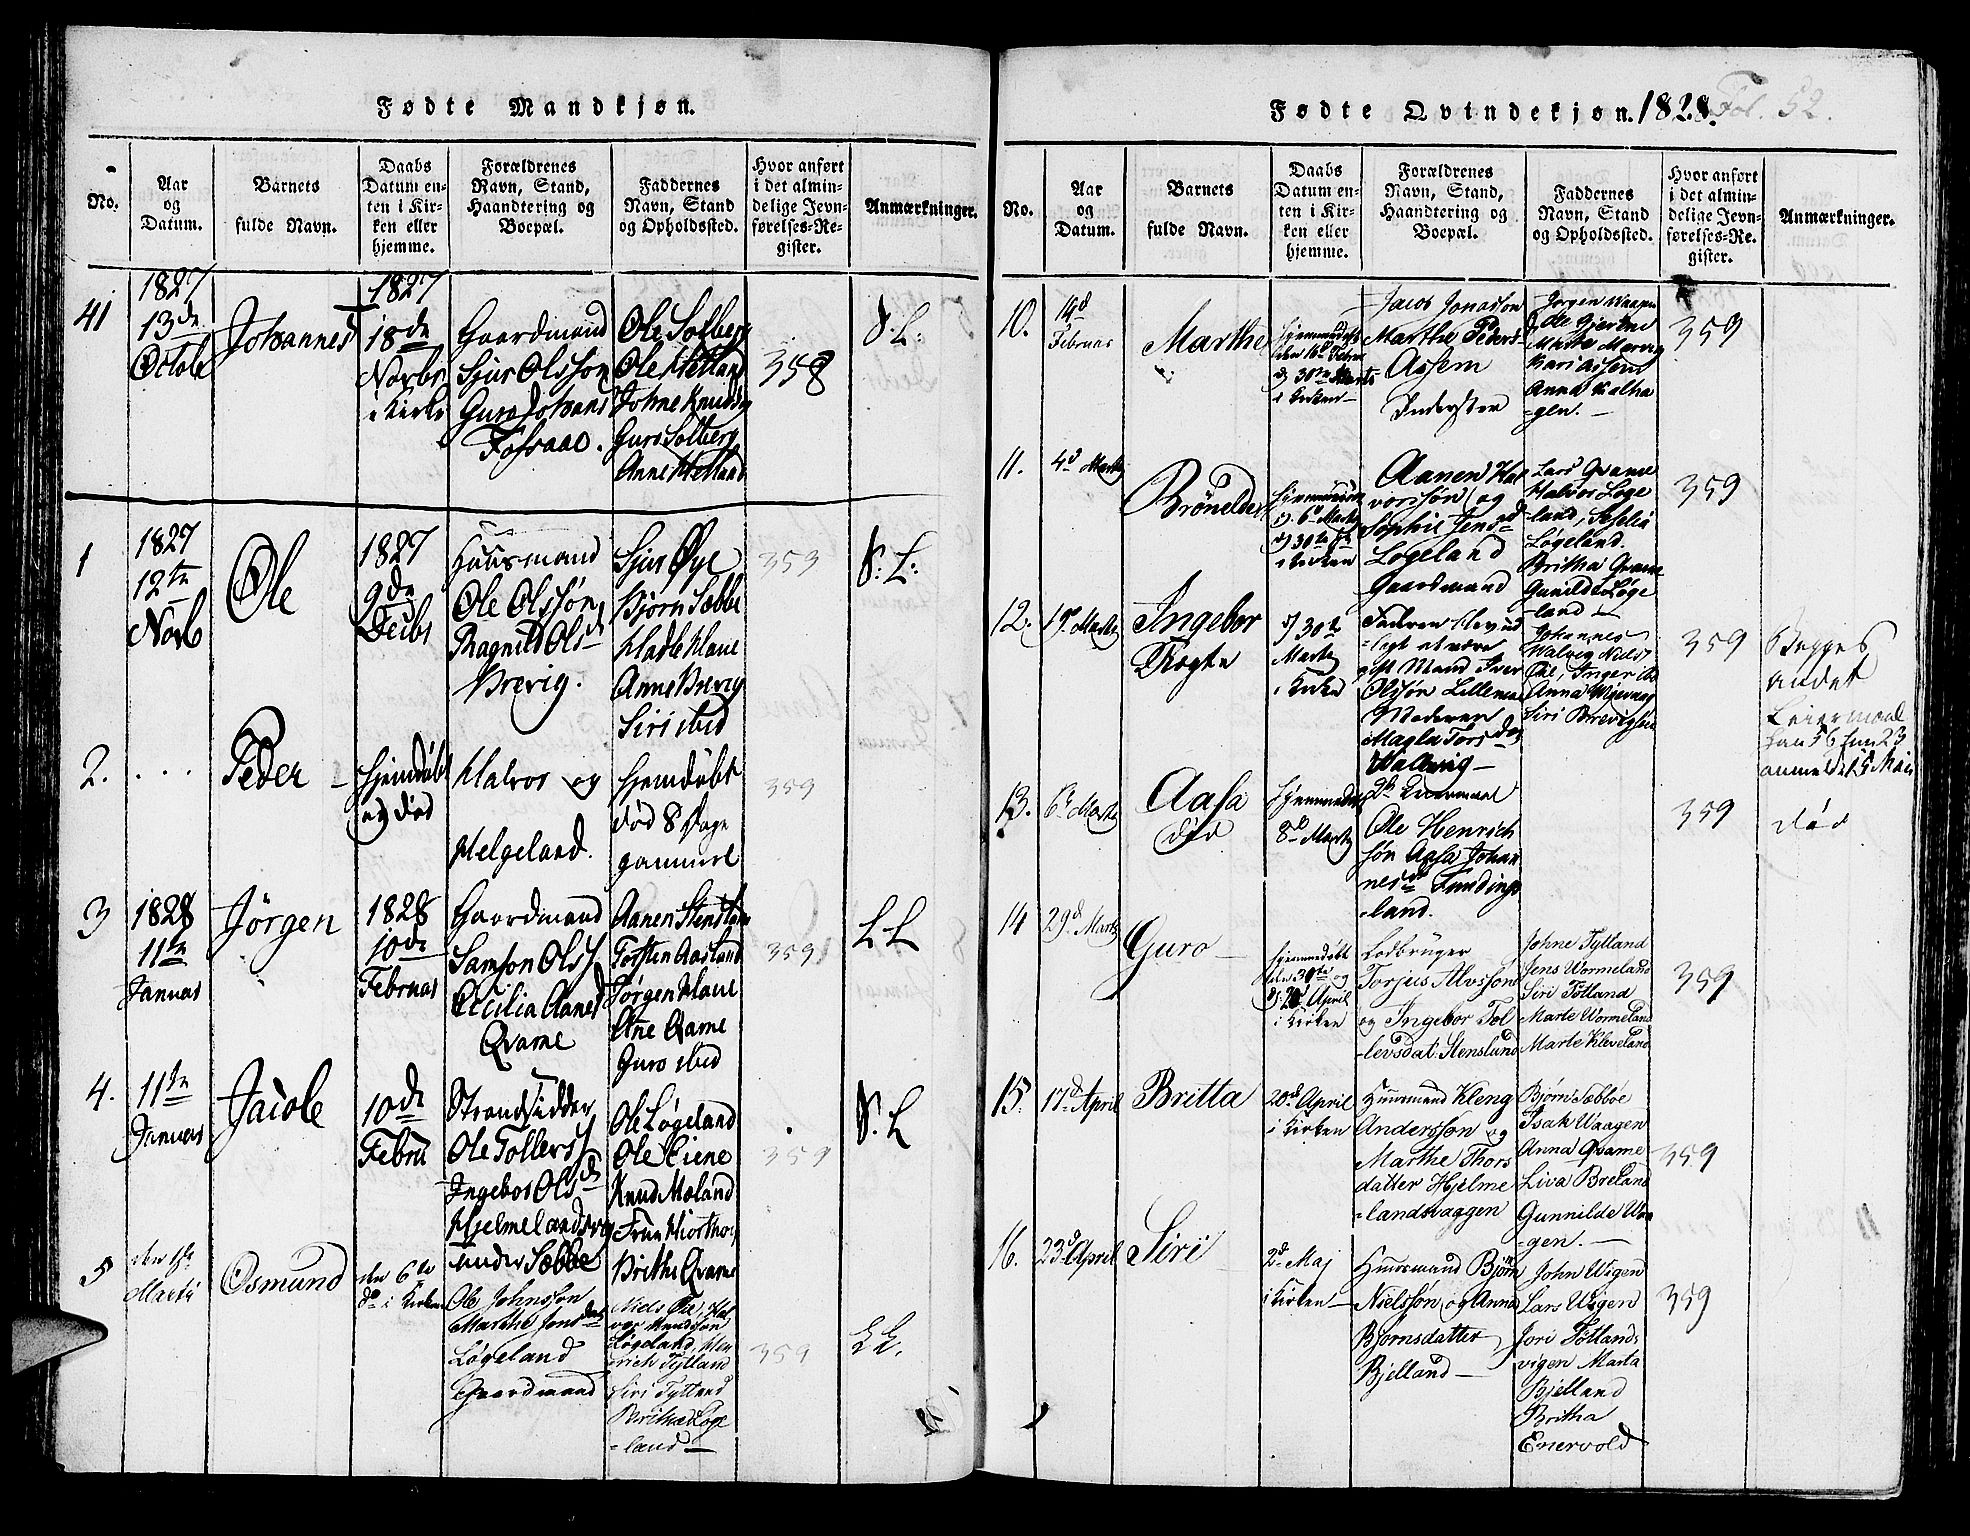 Fødte Mandkjøn.
No.
Aar
og
Datum.
Barnets
fulde Navn.
Daabs
Datum en-
ten i Kir-
ken eller
hjemme.
Forældrenes
Navn, Stand,
Haandtering og
Boepæl.
Faddernes
Navn, Stand
og Opholdssted.
Hvor anført
i det almin-
delige Jevn-
førelses-Re-
gister.
Anmærkninger.
41
1827
13de
Octobr
Johannes
1827
18de
Novbr
i Kirke
Gaardmand
Sjur Olsson
Guro Johans
Fossaae.
Ole Solberg
Ole Hetland
Johne Knuds
Guro Solberg
Anne Hetland
358
S. L:
1
1827
12te
Novb
Ole
1827
9de
Decbr
Huusmand
Ole Olssøn
Ragnild Olsd
Brevig.
Sjur Øye
Bjørn Sæbbe
Anne Brevig
Siri ibid
353
S: L:
2.
. . .
Peder
hjemdøbt
og død
Halvor og
Helgeland.
hjemdøbt
død 8 Dage
gammel
359
3
1828
11te
Januar
Jørgen
1828
10de
Februar
Gaardmand
Samson Ols
Cecilia Aanes
Qvame
Aanen Stensland
Torsten Aasland
Jørgen Klaue
Ane Qvame
Guro ibid
359
L L
4.
11te
Januar
Jacob
10de
Febru
Strandsidder
Ole Tollers
Ingebor Olsd
Hjelmelandsvog
under Sæbbe
Ole Løgeland
Ole Eiene
Knud Mæland
Brithe Qvame
359
S. L
5
Osmund
den 6te
do i Kirken
Ole Johnsson
Marthe Jonsdat
Løgeland
Gaardmand
Niels Øie, Hal
vor Knudsøn
Løgeland, Hen
rich Tytland
Siri Tytland
Britha Løge
-land
359
L L.
Fødte Qvindekjøn. 1828. Fol. 52.
No.
Aar
og
Datum.
Barnets
fulde Navn.
Daabs
Datum en-
ten i Kir-
ken eller
hjemme.
Forældrenes
Navn, Stand,
Haandtering og
Boepæl.
Faddernes
Navn, Stand
og Opholdssted.
Hvor anført
i det almin-
delige Jevn-
førelses-Re-
gister.
Anmærkninger.
10.
14d
Februar
Marthe
2) 30te Marts
i Kirken
Jacob Jonasson
Marthe Peders
Assem
Inderster
Jørgen Waagen
Ole Gjerstne
Kari Assem
Anna Valha
-gen.
359
11.
4d Marts
Brønelde
1) 6d Marts
2) 30te
i Kirken
Aanen Hal
vorssøn og
Sophie Jensd
Løgeland
Gaardmand
Lars Qvame
Halvor Løge
land,
Løgeland.
Britha Qvame
Gunilde Løge
land
359
12.
Ingebor
Tregte
2) 30te
Marts
i Kirke
Faderen blev ud
-lagt at være
gift Mand Iver
Olssøn
Moderen
Magla Torsdat
Walvig
2t Leiermaal
Johannes
Walvig, Niels
Siri Brevig
359
Begges
andet
Leiermaal
anmeldet 5 Mai
13.
6d Marts
Aasa
død
hjemmedøbt
8d Marts
Ole Henrich
søn Aasa Johan
nesd Fundings
-land.
359
død
14
29d Marts
Guro
hjemmedøbt
den 30te og
April
i Kirken
Lodbruger
Torjus Alvsson
og Ingebor Tol
-levsdat: Stenslund
Johne Tytland
Jens Wormeland
Siri Totland
Marte Wormeland
Marte Kleveland
359
15.
17d April
Britta
20d April
i Kirken
Huusmand Kleng
Andersson og
Marthe Thors
datter Hjelme
-landsvaggen
Bjørn Sæbbøe
Isak Waagen
Anna Qvame
Liva Breland
Gunnilde Waa
-gen.
359
16.
23d April
Siri
2d Maj
i Kirken
Huusmand Bjørn
Nielssøn og Anna
Bjørnsdatter
Bjelland
John Wigen
Lars Wigen
Jori Totlands
vigen Marta
Bjelland
Britha
Enervold
359